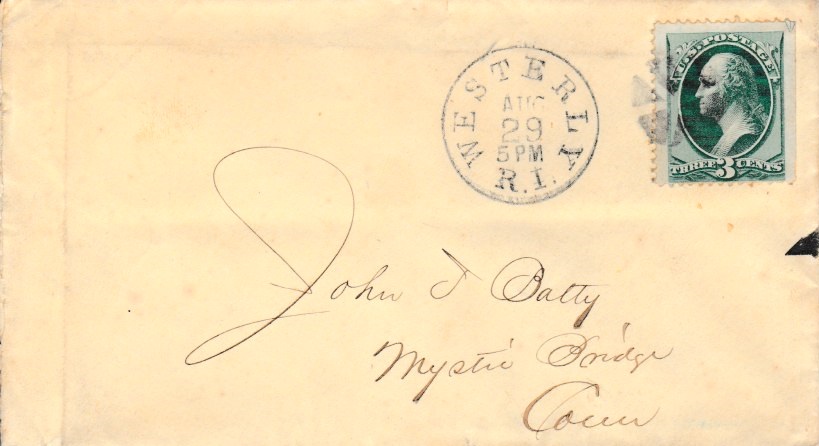 WESTERLY
AUG
29
5 PM
R.I.
U.S. POSTAGE
THREE 3 CENTS
John T Batty
Mystic Bridge
Conn